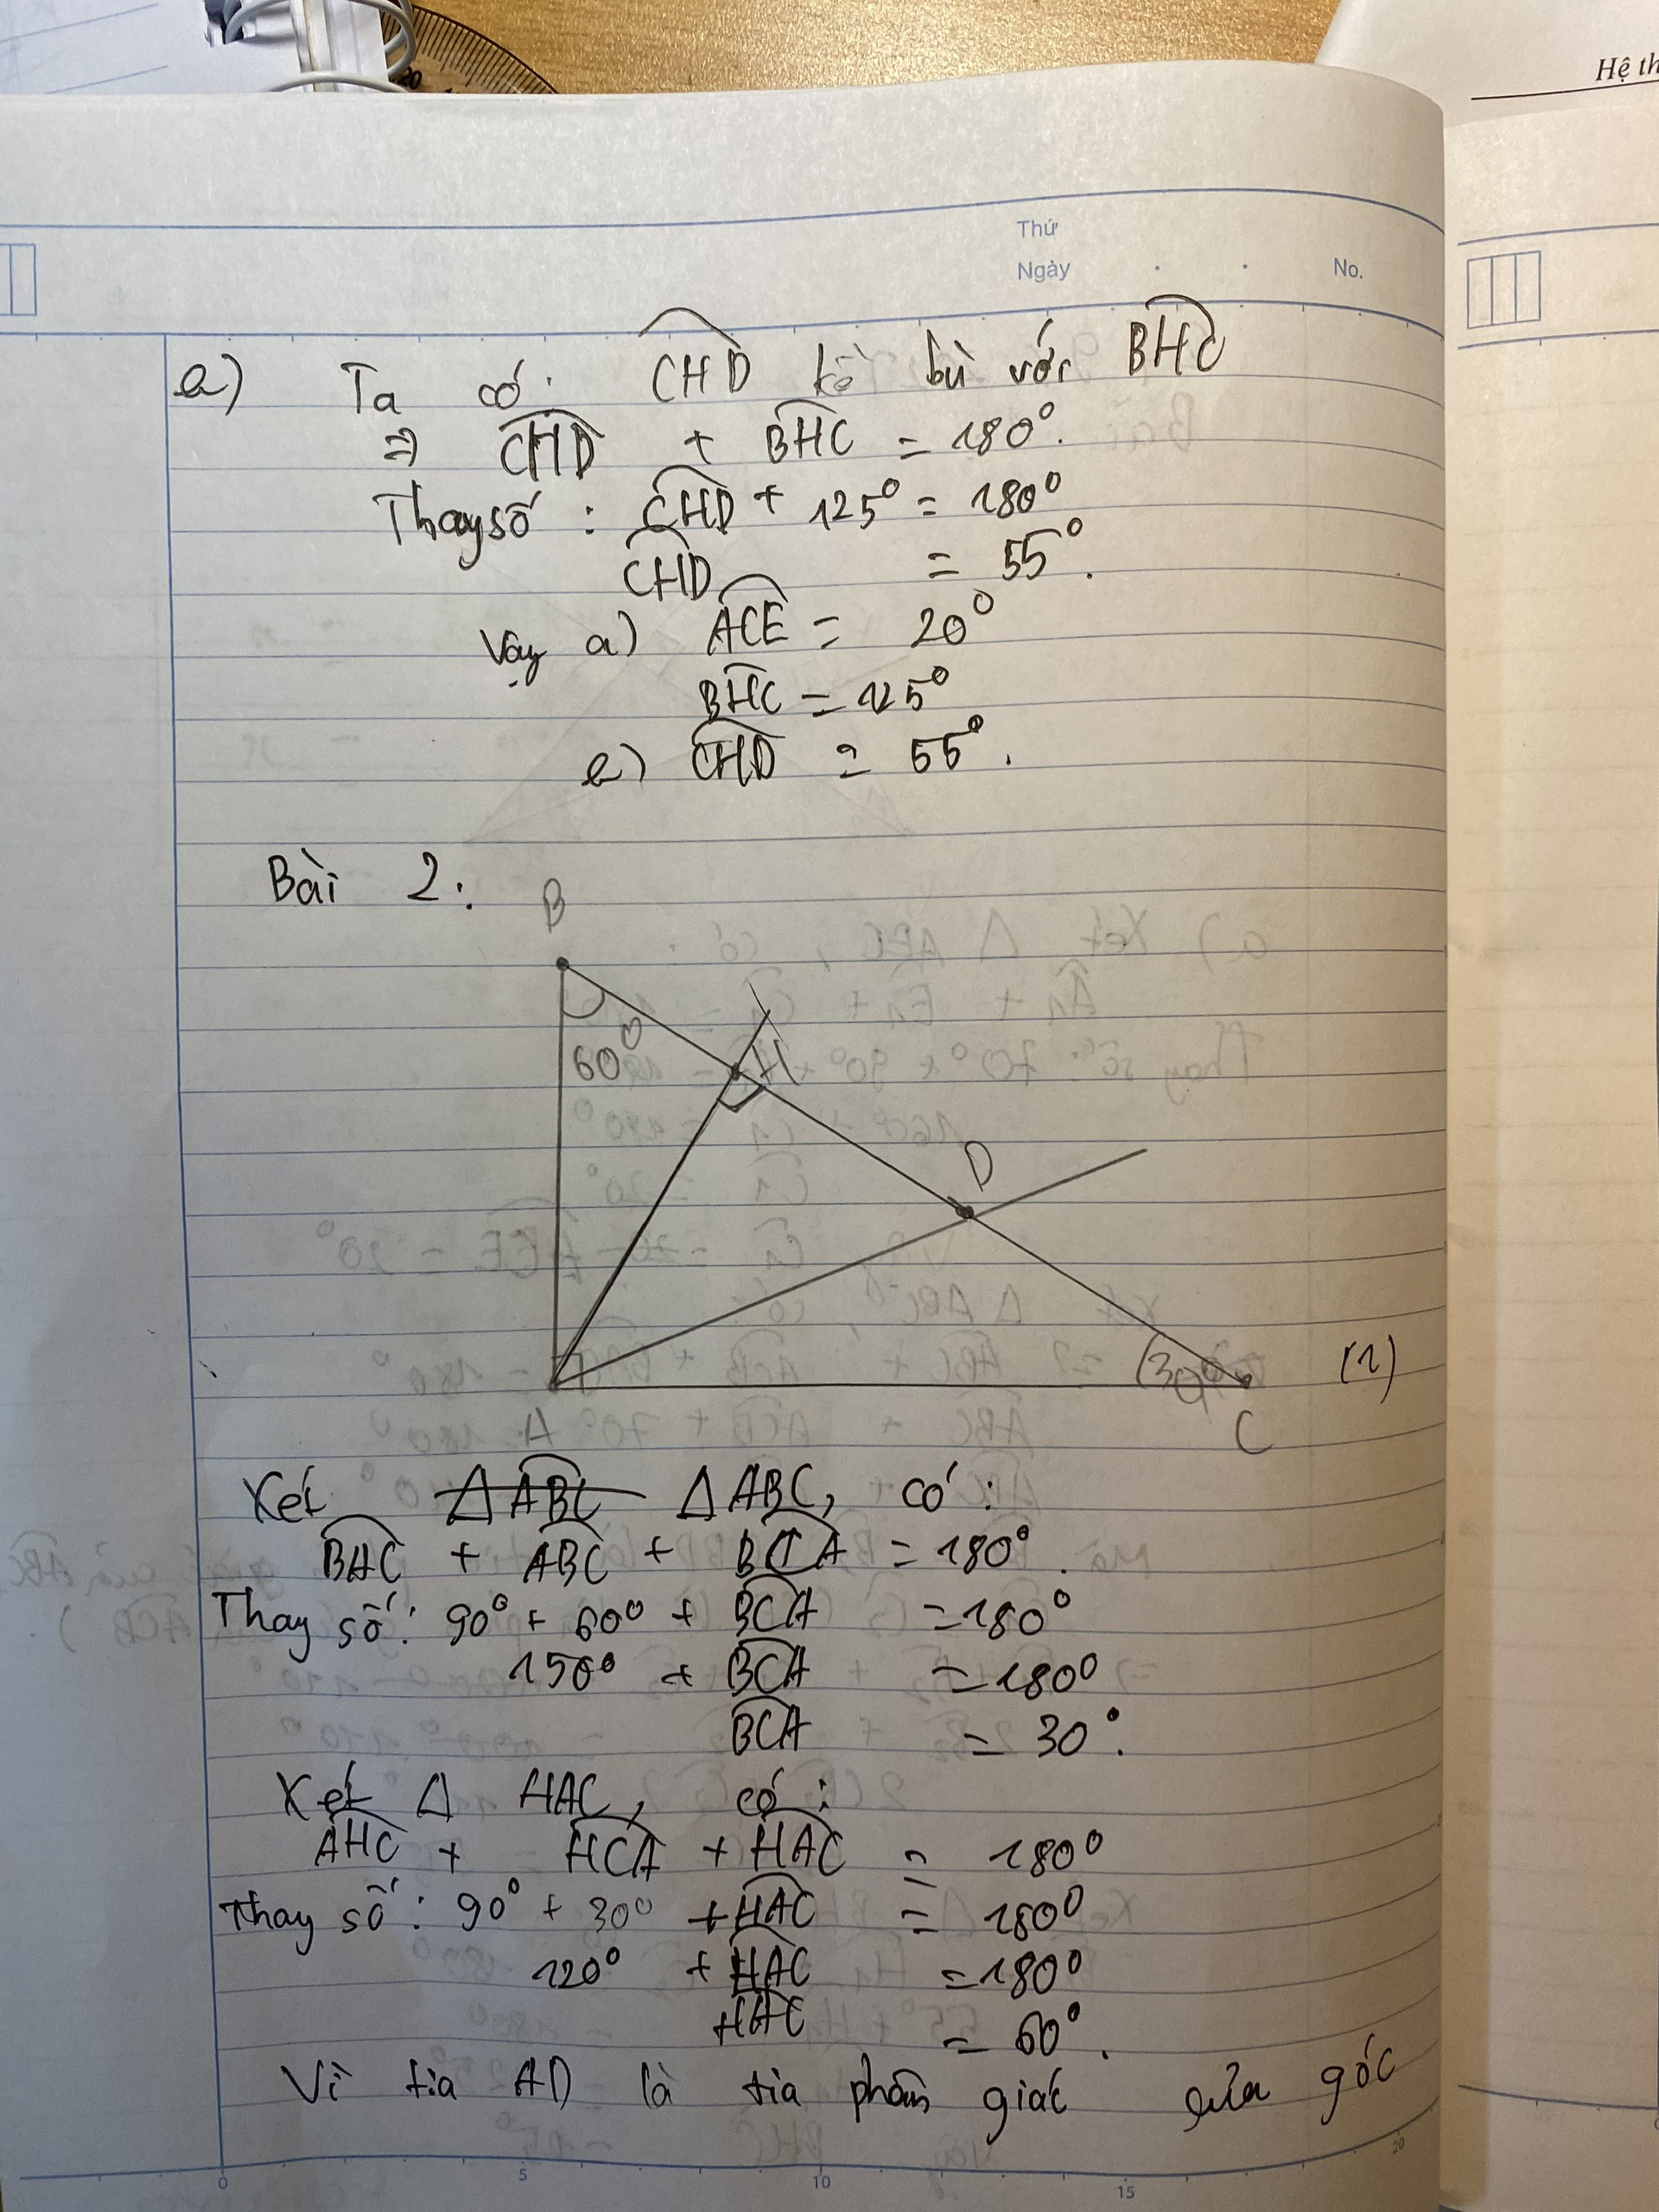 20
Hệ th
Thứ
Ngày . . No.
a) Ta có: CHD kề bù với BHC
⇒ CHD + BHC = 180°.
Thay số : CHD + 125° = 180°
CHD = 55°.
Vậy a) ACE = 20°
BHC = 125°
e) CHD = 55°.
Bài 2:
B
60°
H
D
30°
(1)
A
C
Xét ΔABC ΔABC, có:
BAC + ABC + BCA = 180°.
Thay số: 90° + 60° + BCA = 180°
150° + BCA = 180°
BCA = 30°.
Xét Δ HAC, có:
AHC + HCA + HAC = 180°
Thay số: 90° + 30° + HAC = 180°
120° + HAC = 180°
HAC = 60°.
Vì tia AD là tia phân giác của góc
0 5 10 15 20